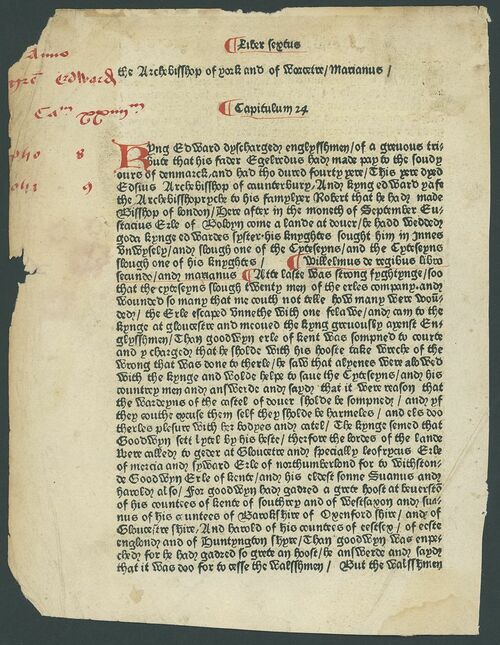 Liber sextus
Anno
the Archebisshop of york and of Worcetre / Marianus /
Edward
Capitulum 24
Kyng Edward dyscharged englysshmen / of a greuous tri-
bute that his fader Egelredus had made pay to the soudy
ours of denmarck, and had tho dured fourty yere / This yere dyed
8
Edsius Archebisshop of caunterbury. And kyng edward yafe
the Archebisshopryche to his famylyer Robert that he had made
9
Bisshop of london / Here after in the moneth of September Eu-
stacius Erle of Boloyn come a lande at douer / he hadd wedded
gode kynge edwardes syster his knyghtes sought him in Innes
vnwysely / and slough one of the Cyteseyns / and the Cyteseyns
slough one of his knyghtes / Wilhelmus de regibus libro
secundo / and marianus Atte laste was strong fyghtynge / soo
that the cyteseyns slough twenty men of the erles company. and
wounded so many that me couth not telle how many were woū-
ded / the Erle escaped vnnethe with one felawe / and cam to the
kynge at gloucestre and meoued the kyng greuously ayenst En-
glysshmen / Than goodwyn erle of kent was sompned to courte
and y charged that he sholde with his hooste take wreche of the
wrong that was done to therle / he saw that alyenes were alowed
with the kynge and wolde helpe to saue the Cyteseyns / and his
countrey men and answerde and sayd that it were reason that
the wardeyns of the castel of douer sholde be sompned / and yf
they couthe excuse them self they sholde be harmeles / and els doo
therles plesure with her bodyes and catel / The kynge semed that
Goodwyn sett lytel by his heste / therfor the lordes of the lande
were called to geder at Gloucetre and specially leofrycus Erle
of mercia and syward Erle of northumberlond for to withston-
de Goodwyn Erle of kente / and his eldest sonne Suanus and
harold also / For goodwyn had gadred a grete hoost at
of his countees of kent of southrey and of westsaxon and sua-
nus of his countees of Barokshire of Oxenford shire / and of
Gloucetre shire, And harold of his countees of eestsex / of eeste
englond and of Huntyngton shyre / Than goodwyn was enpe-
ched for he had gadred so grete an hoost / he answerd and sayd
that it was doo for to cesse the walsshmen / But the walsshmen